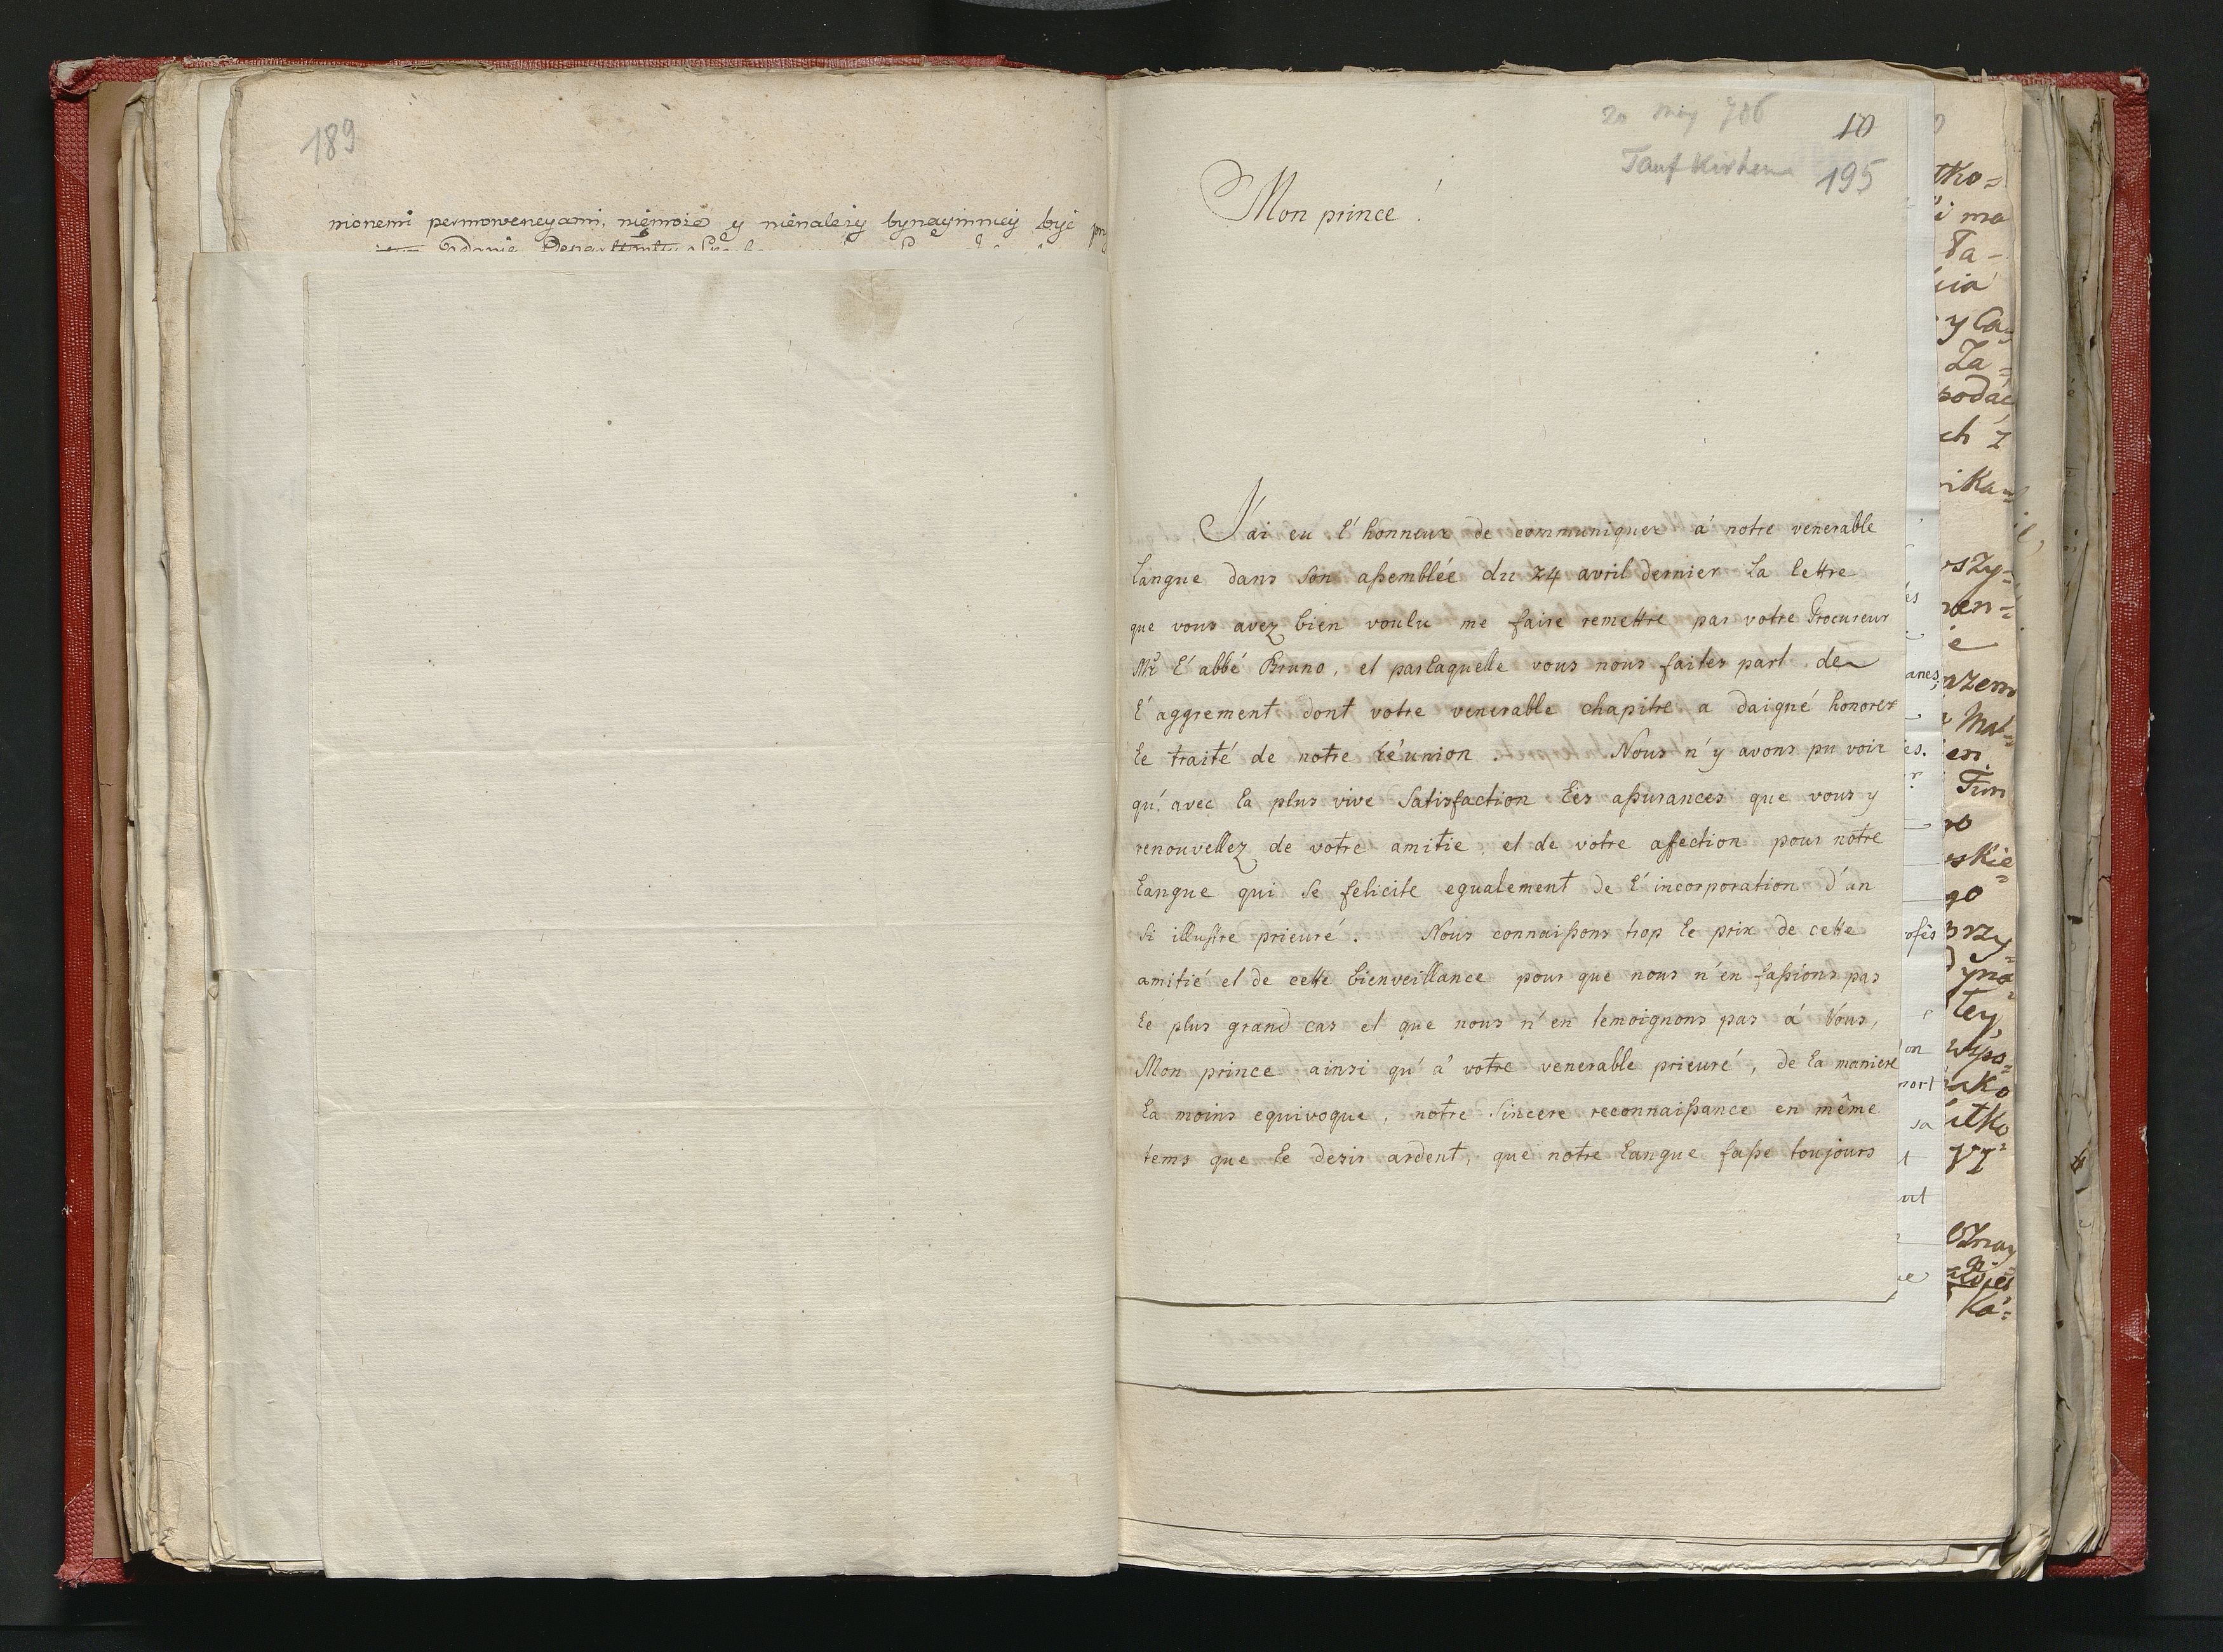 189
nionemi permoweneyami, niemoie y nienalezy bynaymniey byc
20 may 786
10
Taufkirchen
195
Mon prince!
J'ai eu l'honneur de communiquer à notre venerable
langue dans son aßemblée du 24 avril dernier la lettre
que vous avez bien voulu me faire remettre par votre Procureur
Mr l'abbé Bruno, et parlaquelle vous nous faites part de
l'aggrement dont votre venerable chapitre a daigné honorer
le traité de notre réunion. Nous n'y avons pu voir
qu'avec la plus vive Satisfaction les aßurances que vous y
renouvellez de votre amitie et de votre affection pour notre
langue qui se félicite egualement de l'incorporation d'un
si illustre prieuré. Nous connaißons trop le prix de cette
amitié et de cette bienveillance pour que nous n'en faßions pas
le plus grand cas et que nous n'en temoignons pas à Vous,
Mon prince ainsi qu'à votre venerable prieuré, de la maniere
la moins equivoque, notre Sincere reconnaißance en même
tems que le desir ardent, que notre langue faße toujours
tko=
i ma
Ta-
cia
y Ca=
Za=
podac
ch 1
ika=
szy=
en=
e
azem
Mal=
en
Tur
go
skie=
go
rzy=
yna=
tey,
wspo=
ako
itko
VI
es
anes;
es.
ofès
on
mort
sa
t
ut
ka=